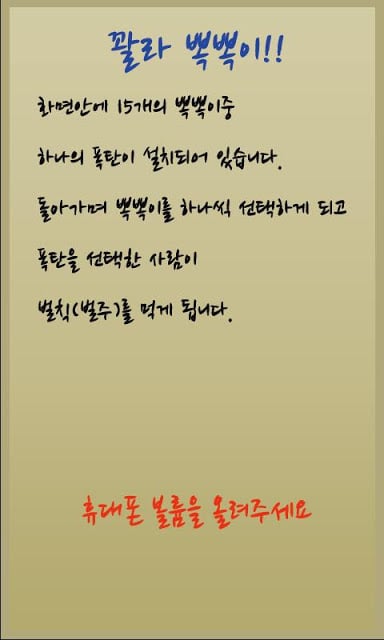 꽐라 뽁뽁이!!
화면안에 15개의 뽁뽁이중
하나의 폭탄이 설치되어 있습니다.
돌아가며 뽁뽁이를 하나씩 선택하게 되고
폭탄을 선택한 사람이
벌칙(벌주)를 먹게 됩니다.
휴대폰 볼륨을 올려주세요